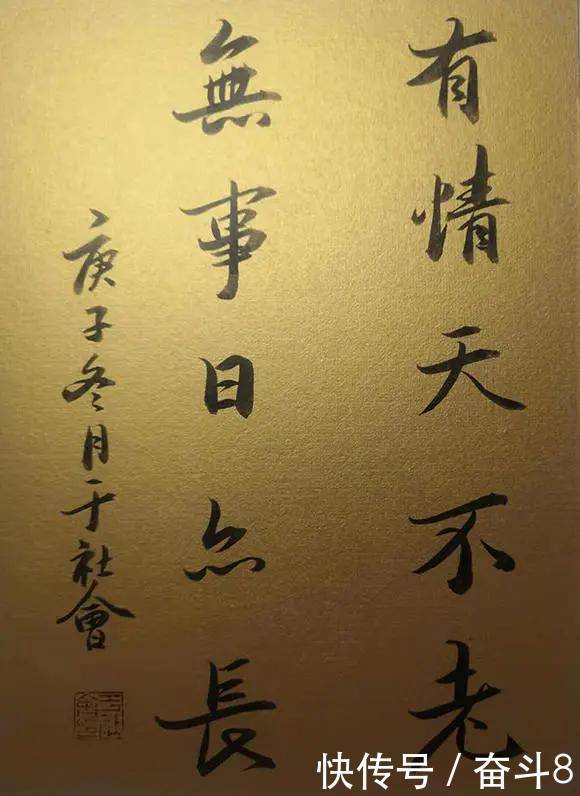 有情天不老
無事日亦長
庚子冬月于社會
快传号 / 奋斗8